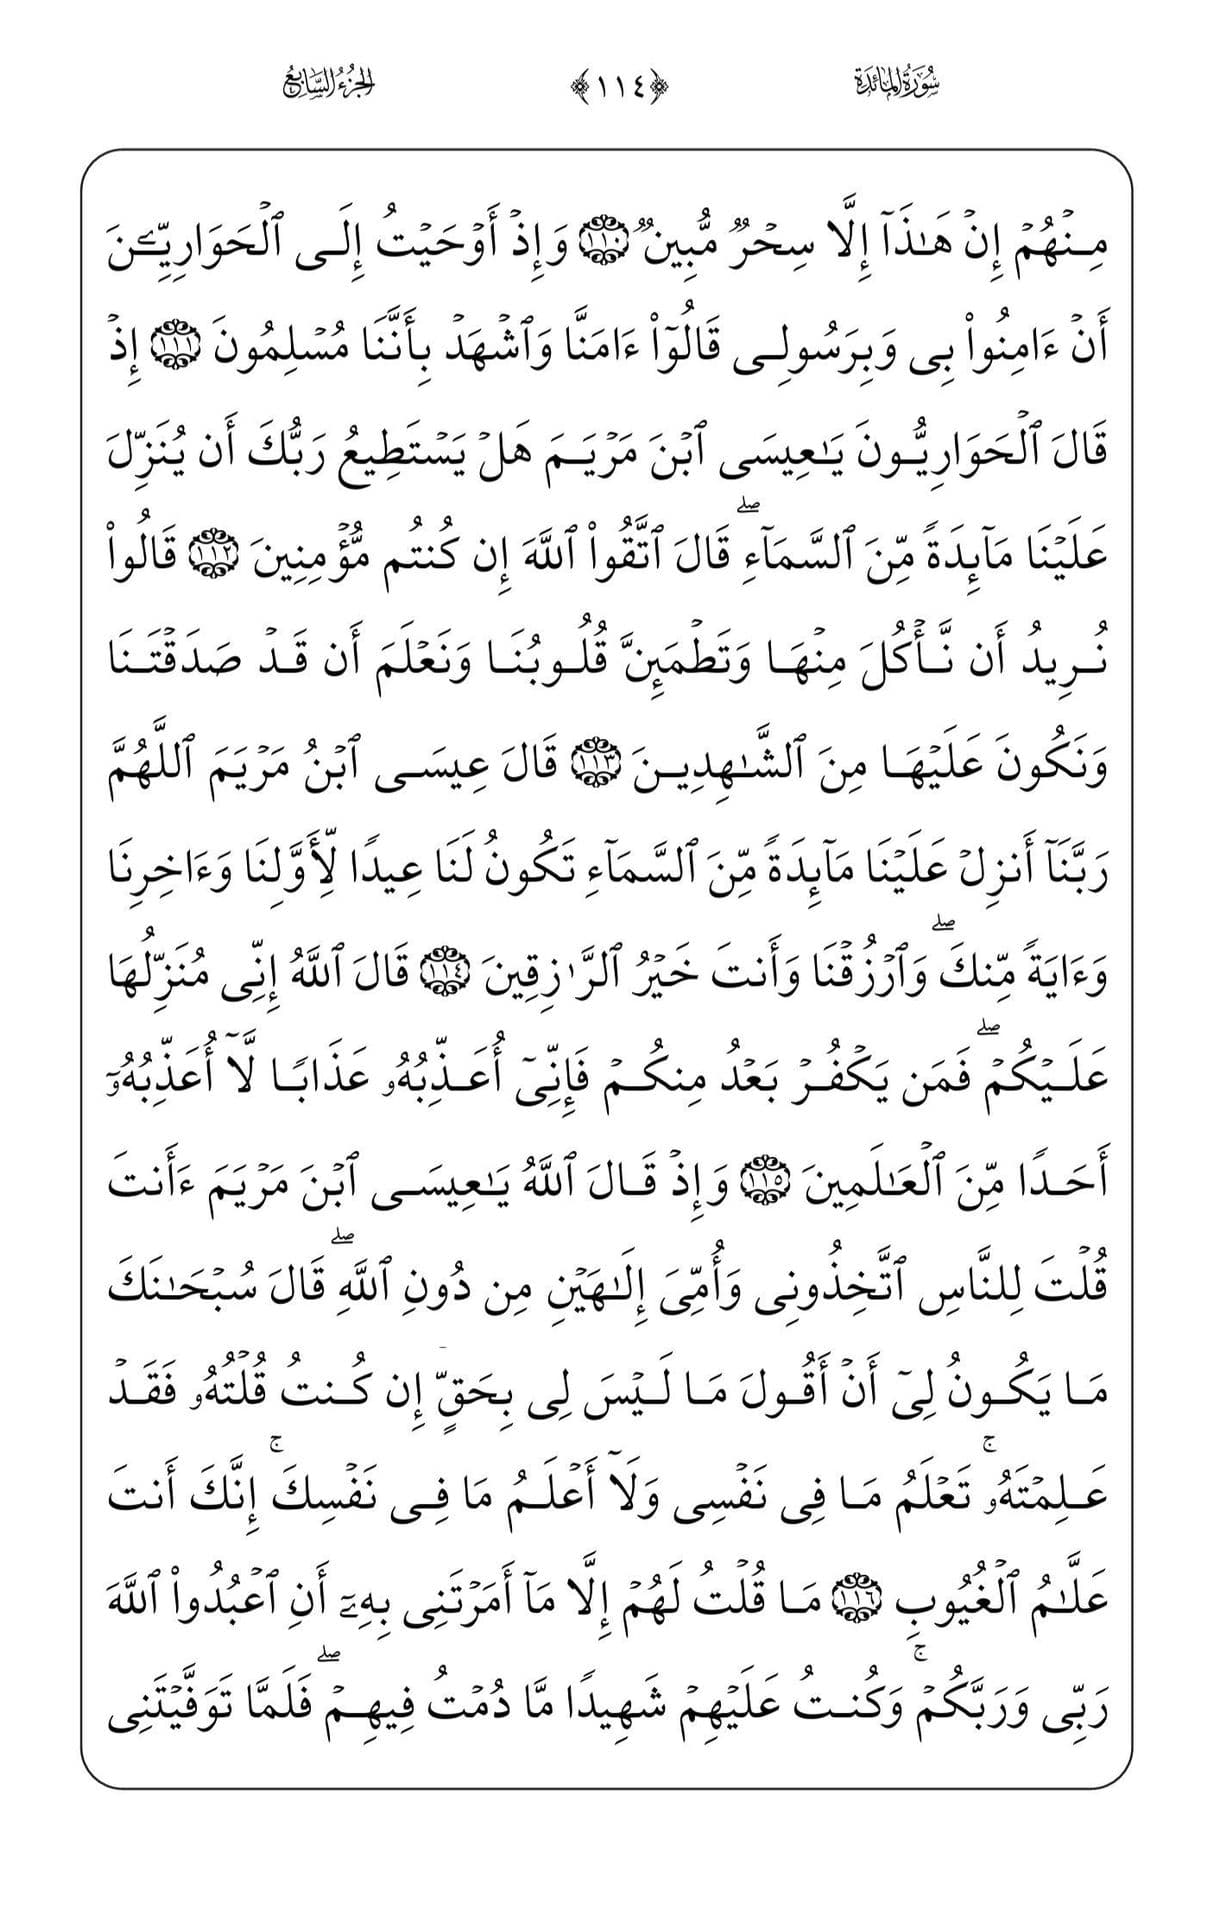 سُورَةُ المَائدَة ﴿١١٤﴾ الجُزْءُ السَّابِعُ
مِنۡهُمۡ إِنۡ هَٰذَآ إِلَّا سِحۡرٞ مُّبِينٞ ١١٠ وَإِذۡ أَوۡحَيۡتُ إِلَى ٱلۡحَوَارِيِّـۧنَ
أَنۡ ءَامِنُواْ بِي وَبِرَسُولِي قَالُوٓاْ ءَامَنَّا وَٱشۡهَدۡ بِأَنَّنَا مُسۡلِمُونَ ١١١ إِذۡ
قَالَ ٱلۡحَوَارِيُّونَ يَٰعِيسَى ٱبۡنَ مَرۡيَمَ هَلۡ يَسۡتَطِيعُ رَبُّكَ أَن يُنَزِّلَ
عَلَيۡنَا مَآئِدَةٗ مِّنَ ٱلسَّمَآءِۖ قَالَ ٱتَّقُواْ ٱللَّهَ إِن كُنتُم مُّؤۡمِنِينَ ١١٢ قَالُواْ
نُرِيدُ أَن نَّأۡكُلَ مِنۡهَا وَتَطۡمَئِنَّ قُلُوبُنَا وَنَعۡلَمَ أَن قَدۡ صَدَقۡتَنَا
وَنَكُونَ عَلَيۡهَا مِنَ ٱلشَّٰهِدِينَ ١١٣ قَالَ عِيسَى ٱبۡنُ مَرۡيَمَ ٱللَّهُمَّ
رَبَّنَآ أَنزِلۡ عَلَيۡنَا مَآئِدَةٗ مِّنَ ٱلسَّمَآءِ تَكُونُ لَنَا عِيدٗا لِّأَوَّلِنَا وَءَاخِرِنَا
وَءَايَةٗ مِّنكَۖ وَٱرۡزُقۡنَا وَأَنتَ خَيۡرُ ٱلرَّٰزِقِينَ ١١٤ قَالَ ٱللَّهُ إِنِّي مُنَزِّلُهَا
عَلَيۡكُمۡۖ فَمَن يَكۡفُرۡ بَعۡدُ مِنكُمۡ فَإِنِّيٓ أُعَذِّبُهُۥ عَذَابٗا لَّآ أُعَذِّبُهُۥٓ
أَحَدٗا مِّنَ ٱلۡعَٰلَمِينَ ١١٥ وَإِذۡ قَالَ ٱللَّهُ يَٰعِيسَى ٱبۡنَ مَرۡيَمَ ءَأَنتَ
قُلۡتَ لِلنَّاسِ ٱتَّخِذُونِي وَأُمِّيَ إِلَٰهَيۡنِ مِن دُونِ ٱللَّهِۖ قَالَ سُبۡحَٰنَكَ
مَا يَكُونُ لِيٓ أَنۡ أَقُولَ مَا لَيۡسَ لِي بِحَقٍّ إِن كُنتُ قُلۡتُهُۥ فَقَدۡ
عَلِمۡتَهُۥۚ تَعۡلَمُ مَا فِي نَفۡسِي وَلَآ أَعۡلَمُ مَا فِي نَفۡسِكَۚ إِنَّكَ أَنتَ
عَلَّٰمُ ٱلۡغُيُوبِ ١١٦ مَا قُلۡتُ لَهُمۡ إِلَّا مَآ أَمَرۡتَنِي بِهِۦٓ أَنِ ٱعۡبُدُواْ ٱللَّهَ
رَبِّي وَرَبَّكُمۡۚ وَكُنتُ عَلَيۡهِمۡ شَهِيدٗا مَّا دُمۡتُ فِيهِمۡۖ فَلَمَّا تَوَفَّيۡتَنِي